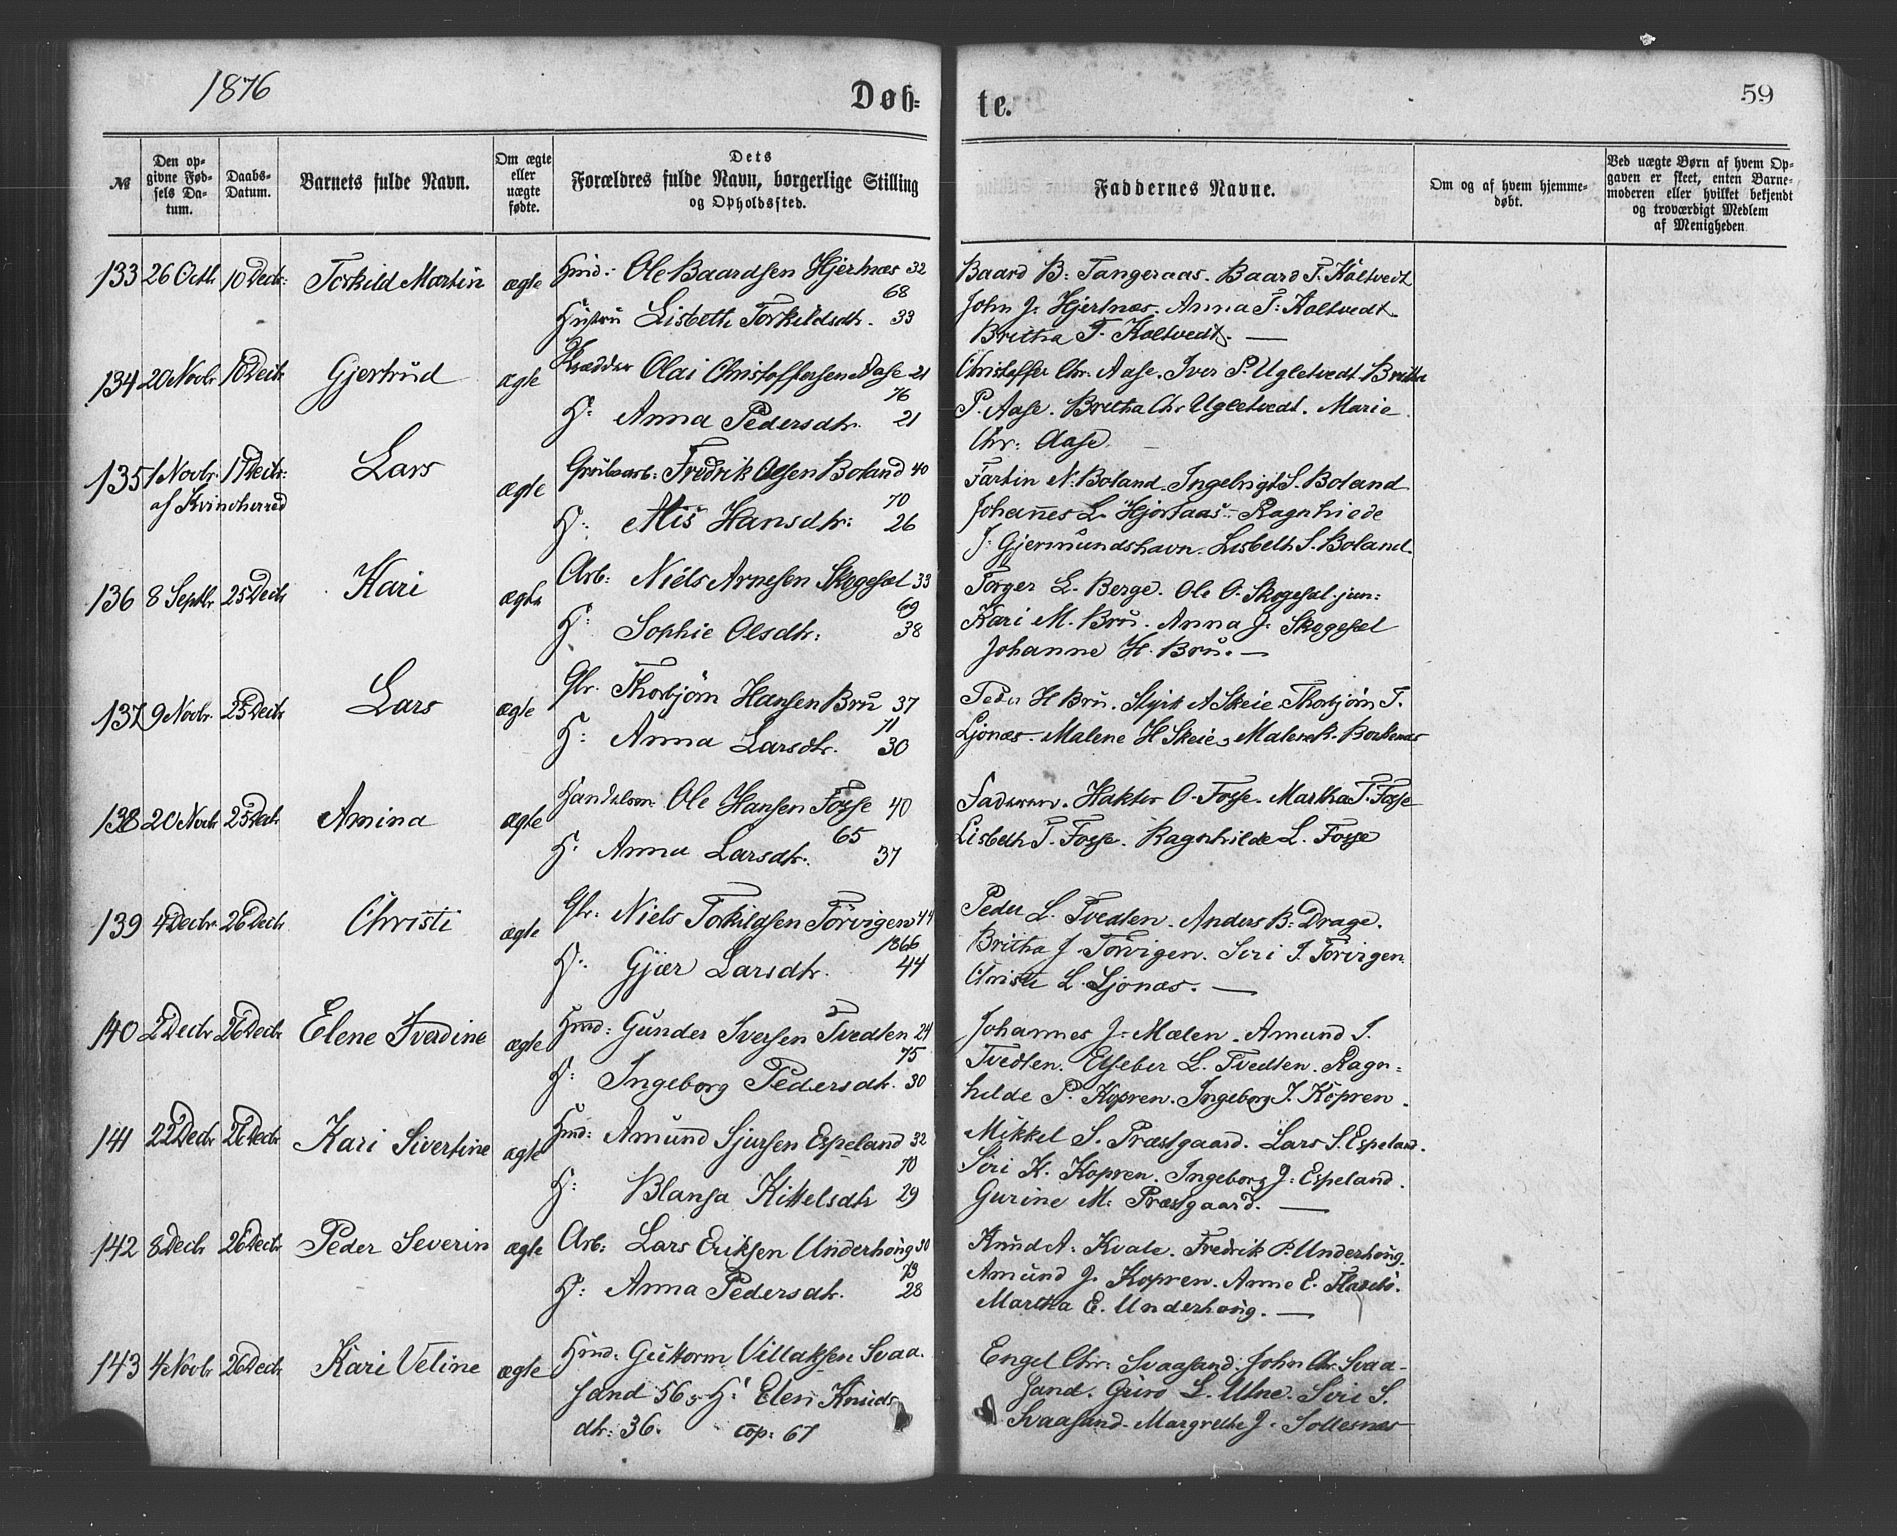 1876
Døb=
te.
59
№
Den op-
givne Fød-
sels Da-
tum.
Daabs-
Datum.
Barnets fulde Navn.
Om ægte
eller
uægte
fødte.
Dets
Forældres fulde Navn, borgerlige Stilling
og Opholdssted.
Faddernes Navne.
Om og af hvem hjemme-
døbt.
Ved uægte Børn af hvem Op-
gaven er skeet, enten Barne-
moderen eller hvilket bekjendt
og troværdigt Medlem
af Menigheden.
133 26 Octbr 10 Decbr: Torkild Martin ægte Hmd: Ole Baardsen Hjertnæs 32
68
Hustru Lisbeth Torkildsdtr. 33
Baard B: Tangeraas. Baard T. Koltvedt
John J. Hjertnæs. Anna T: Koltvedt.
Britha T. Koltvedt. —
134 20 Novbr 10 Decbr Gjertrud ægte Olai Christoffersen Aase 21
76
H: Anna Pedersdtr. 21
Christoffer Chr. Aase. Iver P. Ugletvedt. Britha
P. Aase. Britha Chr Ugletvedt. Marie
Chr: Aase.
135 1 Novbr. 17 Decbr: Lars ægte Grubearb: Fredrik Olsen Boland 40
af Kvinherred
70
H: Alis Hansdtr: 26
N. Boland. Ingebrigt S. Boland
Johannes L. Hjortaas. Ragnhilde
J. Gjermundshavn. Lisbeth S. Boland.
136 8 Septbr 25 Decbr Kari ægte Arb: Niels Arnesen Skogesæl 33
69
H: Sophie Olsdtr: 38
Torger L. Berge. Ole O. Skogesæl jun:
Kari M. Bru. Anna J. Skogesæl
Johanne H. Bru. —
137 9 Novbr. 25 Decbr Lars ægte Gbr. Thorbjørn Hansen Bru 37
71
H: Anna Larsdtr. 30
Peder H Bru. A Skeie. Thorbjørn T.
Ljonæs. Malene H Skeie,
138 20 Novbr 25 Decbr Amina ægte Handelsm: Ole Hansen Fosse 40
65
H: Anna Larsdtr. 37
Faderen. O. Fosse. Martha T. Fosse
Lisbeth T. Fosse. Ragnhilde L. Fosse
139 4 Decbr. 26 Decbr Christi ægte Gbr: Niels Torkildsen Törvigen 44
1866
H: Gjær Larsdtr. 44
Peder L. Tvedten. Anders B: Drage.
Britha J. Törvigen. Siri I. Törvigen.
Christi L. Ljonæs. —
140 2 Decbr 26 Decbr Elene Iverdine ægte Hmd: Gunder Iversen Tvedten 24
75
H: Ingeborg Pedersdtr. 30
Johannes J. Mælen. Amund I.
Tvedten. Elseber L. Tvedten. Ragn=
hilde P. Kopren. Ingeborg I. Kopren.
141 22 Decbr 26 Decbr Kari Sivertine ægte Hmd: Amund Sjursen Espeland 32
70
H: Blansa Kittelsdtr 29
Mikkel S. Præstgaard. Lars S. Espeland.
Siri K. Kopren. Ingeborg J. Espeland.
Gurine M. Præstgaard. —
142 8 Decbr 26 Decbr Peder Severin ægte Arb: Lars Eriksen Underhoug 30
73
H: Anna Pedersdtr. 28
Knud A. Kvale. Fredrik P. Underhoug.
Amund J. Kopren. Anne E.
Martha E. Underhoug. —
143 4 Novbr 26 Decbr. Kari Veline ægte Hmd: Guttorm Villaksen Svaa-
sand 56, H: Elen Knuds
dtr: 36. cop: 67
Engel Chr: Svaasand. John Chr. Svaa-
sand. Guro L. Ulne. Siri S.
Svaasand. Margrethe J. Sollesnæs